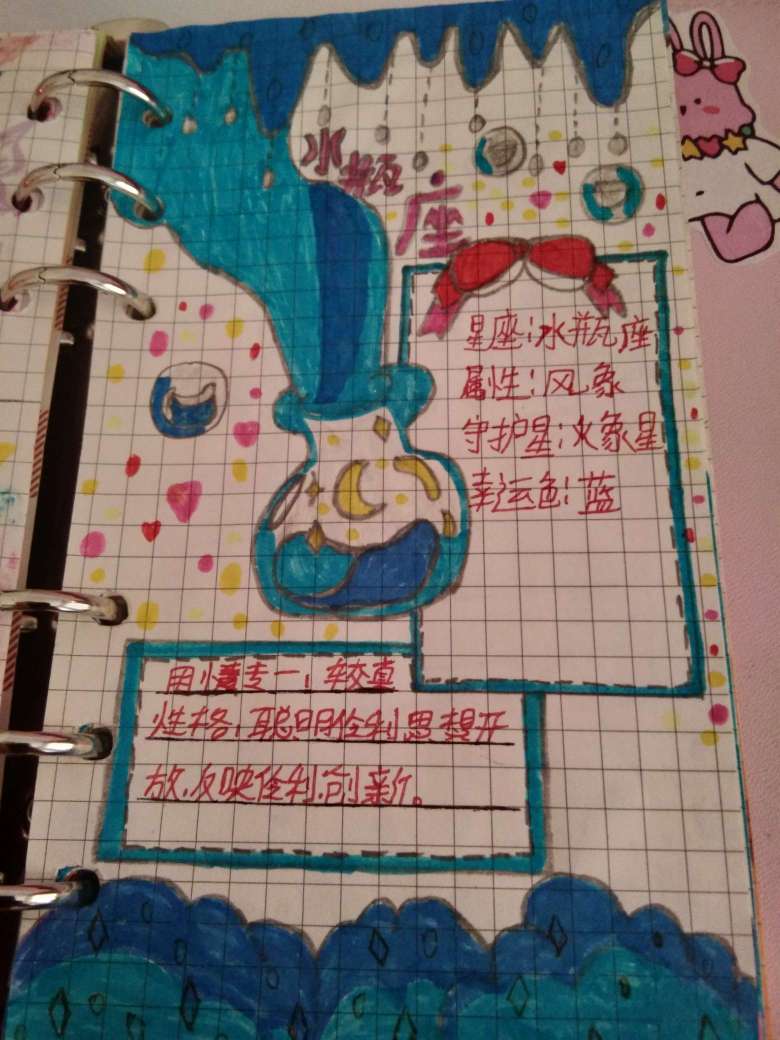 水瓶座
星座：水瓶座
属性：风象
守护星：火象星
幸运色：蓝
用情专一，较真
性格，聪明伶利思想开
放，反映伶利，创新。